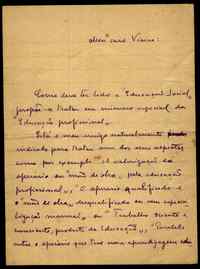 Meu caro Vieira:
Como deve ter lido a Educação Social,
propõe-se tratar em número especial da
Educação profissional.
Está o meu amigo naturalmente
indicado para tratar um dos seus aspectos
como por exemplo a valorização do
operário da mão de obra, pela educação
profissional, O operário qualificado e
a mão de obra, desqualificada em
manual, ou Trabalho docente e
consciente, produto da Educação, Paralelo
entre o operário que fez uma aprendizagem